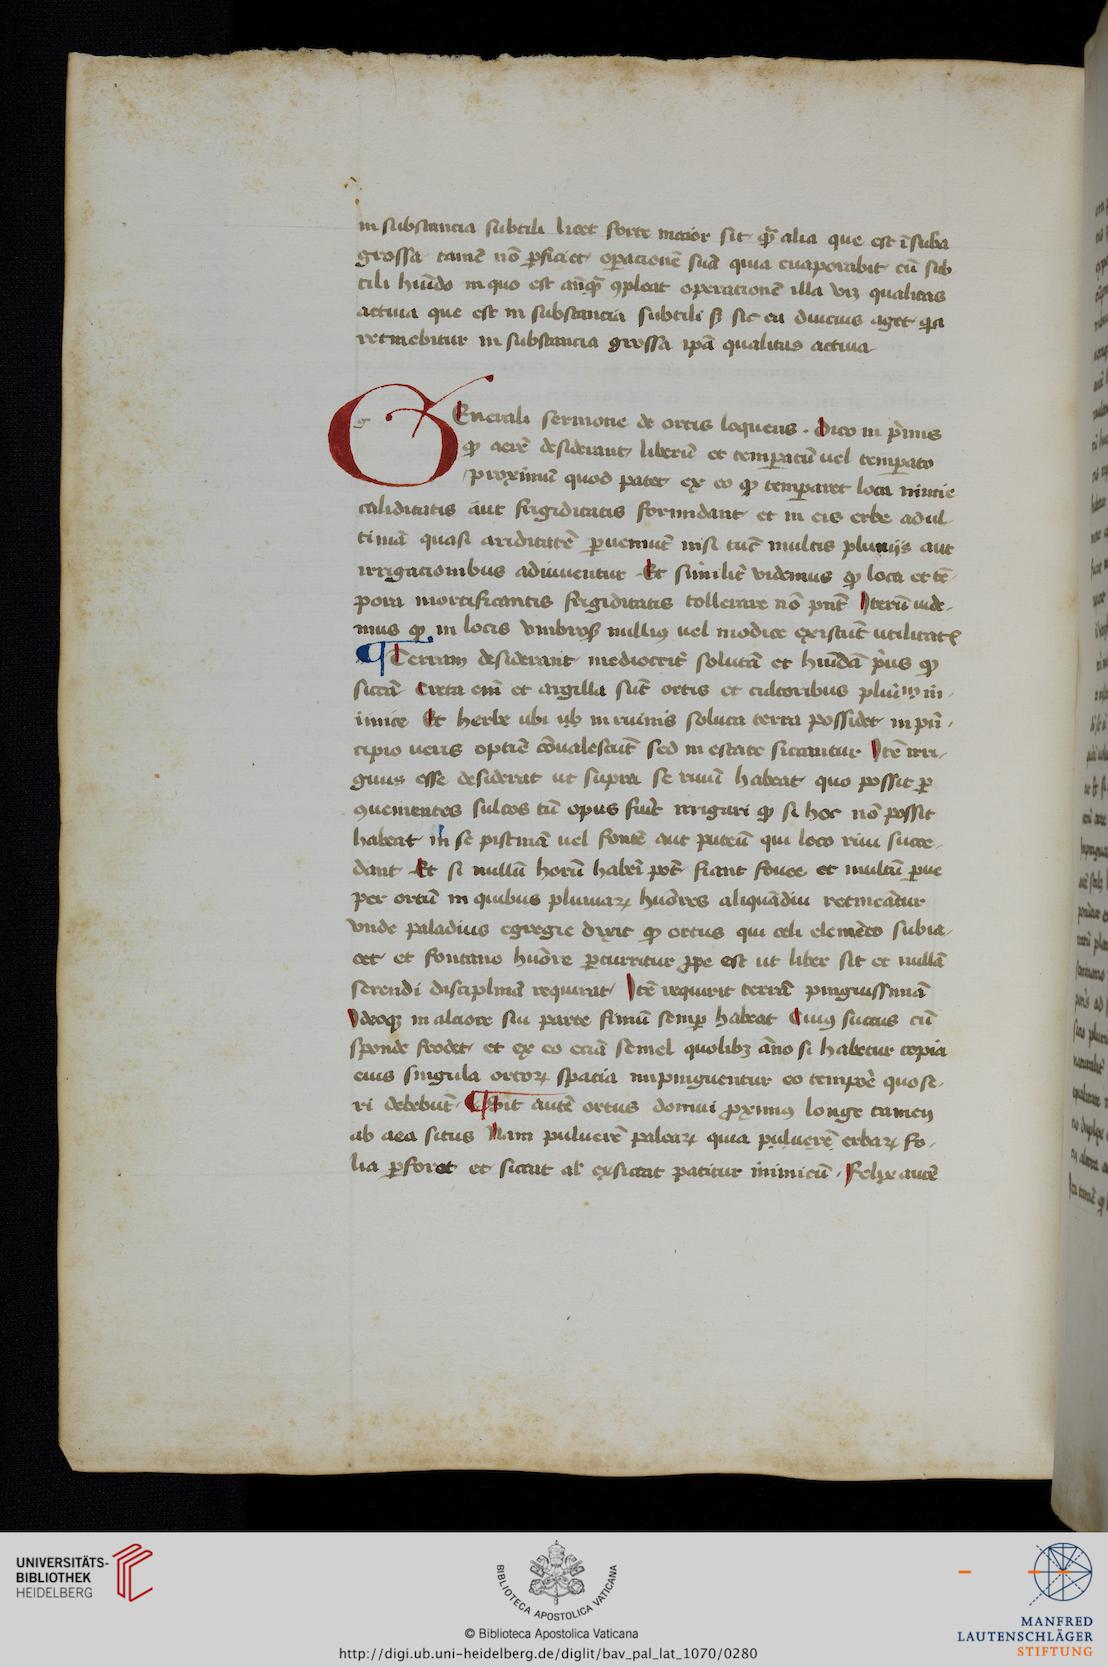 in substancia subtili licet forte maior sit qͣ alia que est ī suba
grossa tamē nō ꝑficiet operacionē suā quia euaporabit cū sub
tili hūido in quo est an̄qͣ ꝯpleat operationē illa vꝫ qualitas
actiua que est in substancia subtili ß sic ea diucius aget qꝛ
retinebitur in substancia grossa ip̄a qualitas actiua
GEnerali sermone de ortis loquens · Dico in p̄mis
ꝙ aerē desiderant liberū et temꝑatū uel temꝑato
proximū quod patet ex eo ꝙ temꝑaret loca nimie
caliditatis aut frigiditatis formidant et in eis erbe ad ul
timā quasi ariditatē ꝑueniūt nisi tūc multis pluuijs aut
irrigacionibus adiuuentur Et similit̄ videmus ꝙ loca et tē-
pora mortificantis frigiditatis tollerare nō pn̄t Iterū uide-
mus ꝙ in locis vmbrosꝭ nulliꝰ uel modice existūt utilitatꝭ
¶ Terram desiderant mediocrit̄ solutā et hūidā p̄us ꝙ
siccā Creta em̄ et argilla sūt ortis et cultoribus plurīꝰ in-
imice Et herbe ubi in ruinis soluta terra possidet in pn̄-
cipio ueris optīe cōualescūt sed in estate siccantur Itē irri-
guus esse desiderat ut supra se riuū habeat quo possit ꝑ
ꝯuenientes sulcos cū opus fiūt irrigari ꝙ si hoc nō possit
habeat in se piscinā uel fontē aut puteū qui loco riui succe-
dant Et si nullū horū haberi pōt fiant fouee et multū ꝑue
per ortū in quibus pluuiaꝝ huōres aliquādiu retineātur
vnde paladius egregie dixit ꝙ ortus qui celi elemēto subia-
cet et fontano huōre ꝑcurritur ꝓpe est ut liber sit et nullā
serendi disciplinā requirat Itē requirit terrā pinguissimā
Ideoqꝫ in alciore sui parte fimū semꝑ habeat Cuiꝰ succus cū
sponde feodet et ex eo eciā semel quolibꝫ āno si habetur copia
eius singula ortoꝝ spacia inpinguentur eo tempoē quo se-
ri debebūt · ¶ Sit autē ortus domui ꝓximꝰ longe tamen
ab aea situs Nam puluerē paleaꝝ quia puluerē erbaꝝ fo-
lia ꝑforat et siccat al' exsiccat patitur inimicū · Felix autē
g
UNIVERSITÄTS-
BIBLIOTHEK
HEIDELBERG
BIBLIOTECA APOSTOLICA VATICANA
© Biblioteca Apostolica Vaticana
http://digi.ub.uni-heidelberg.de/diglit/bav_pal_lat_1070/0280
MANFRED
LAUTENSCHLÄGER
STIFTUNG